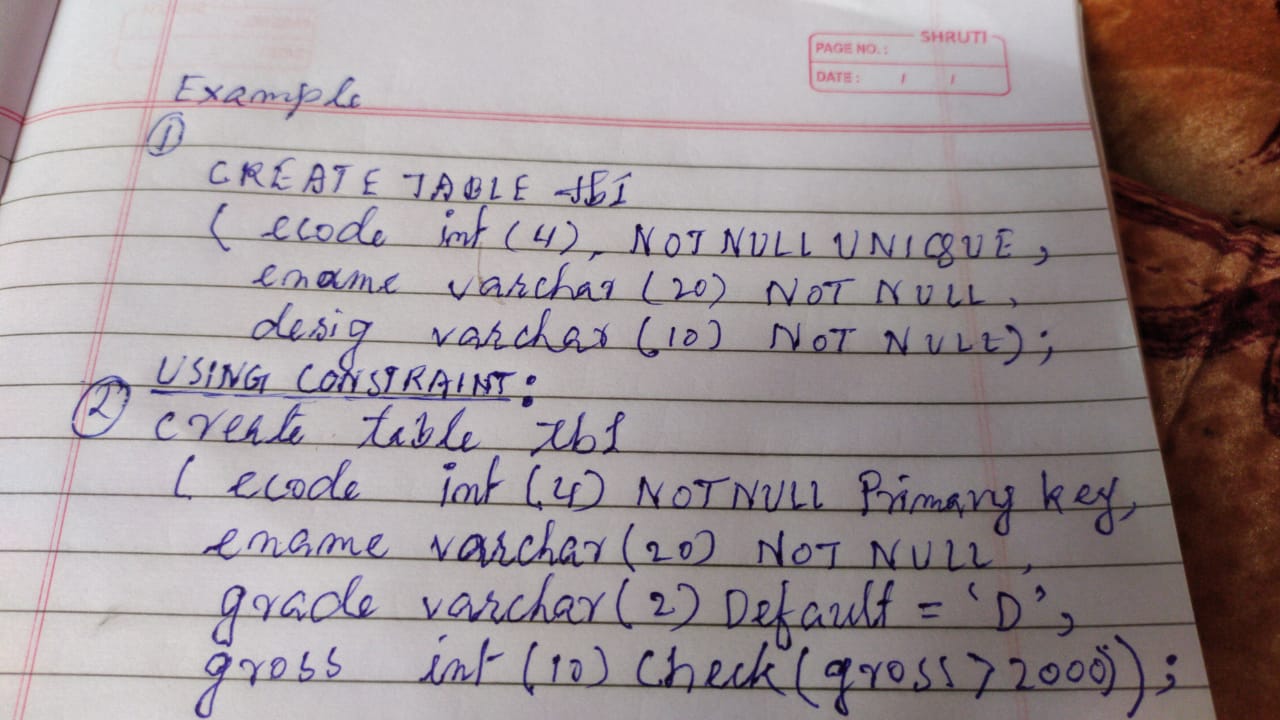 SHRUTI
PAGE NO.:
DATE: / /
Example
①
CREATE TABLE tb1
( ecode int (4), NOT NULL UNIQUE,
ename varchar (20) NOT NULL,
desig varchar (10) NOT NULL);
USING CONSTRAINT:
② create table tb1
( ecode int (4) NOT NULL Primary key,
ename varchar (20) NOT NULL,
grade varchar (2) Default = 'D',
gross int (10) Check (gross > 2000));